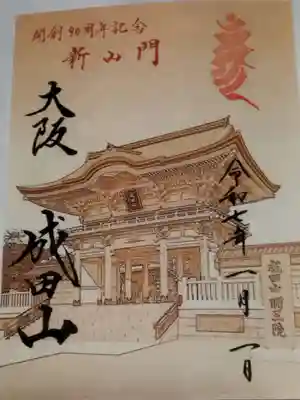 開創90周年記念
新山門
大阪
成田山
令和七年一月一日
成田山 明王院